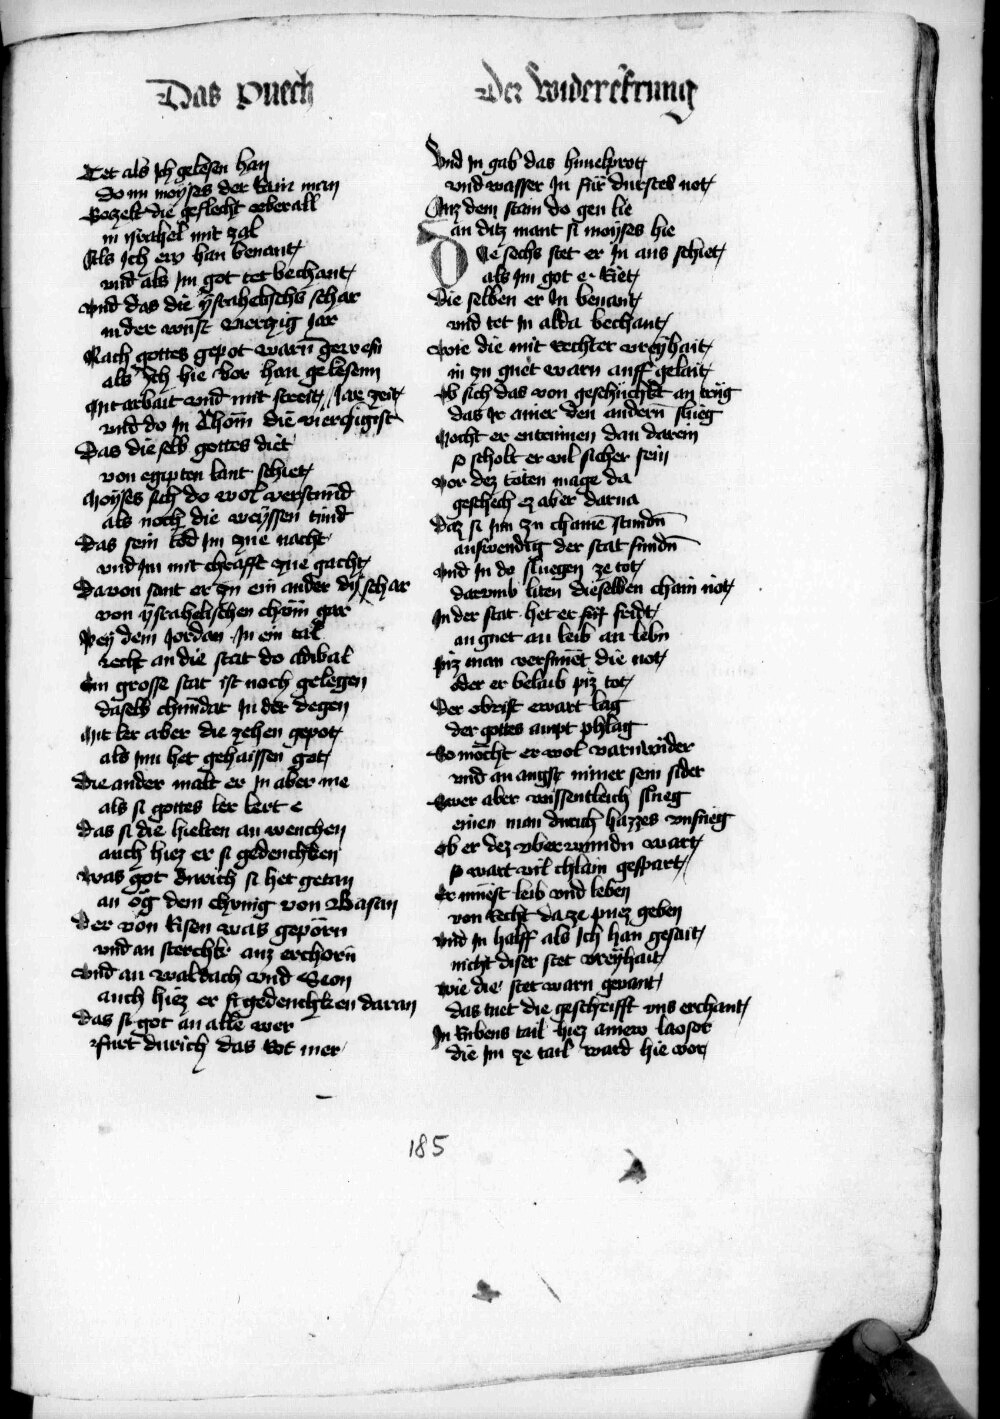 Das Puech
Der Widererkrung
Tet als Ich gelesen han
do nu moyses der rain man
Bezelt die geslecht vberall
in ysrahel mit zal
Als Ich ew han benant
vnd als Im got tet bechant
vnd das die ÿsrahelischs schar
in der wust vierczig Jar
Nach gottes gepot warn gewesn
als Ich hie vor han gelesenn
Mit arbait vnd mit streit Jar zeit
vnd do In chom die vierczigist
Das die selb gottes diet
von egipten lant schiet
Moÿses sich do wol verstund
als noch die weÿssen tund
Das sein tod Im zue nacht
vnd Im mit chrafft zue gacht
Davon sant er zu ein ander dÿ schar
von ÿsrahelischen chom gar
Peÿ dem Jordan In ein tal
recht an die stat do adibal
Ein grosse stat ist noch gelegen
daselb chundat In der degen
Mit ler aber die zehen gepot
als Im het gehaissen got
Die ander malt er In aber me
als si gottes ler lert e
Das si die hielten an wenchen
auch hiez er si gedenchken
Was got durich si het getan
an og dem chunig von Basan
Der von Risen was geporn
vnd an sterchk auz erchorn
vnd an waldach vnd Seon
auch hiez er si gedenchken daran
Das si got an alle wer
furt durich das Rot mer
Vnd In gab das himelprot
vnd wasser In für durstes not
Auz dem stain do gen lie
an ditz mant si moyses hie
Die sechs stet er In aus schiet
als Im got e Riet
Die selben er In benant
vnd tet In alda bechant
Wie die mit rechter vreÿhait
in zu guet warn auff gelait
Ob sich das von geschichkt an trüg
das Ir ainer den andern slueg
Mocht er entrinnen dan darein
so scholt er vil sicher sein
vor dez toten mage da
geschech ez aber darna
Daz si Im zu chame stundn
auswendig der stat fundn
vnd In do sluegen ze tot
darumb liten dieselben chain not
In der stat het er frid
an guet an leib an lebn
piz man versunet die not
oder er belaib piz tot
Der obrist ewart lag
der gottes ampt phlag
So mocht er wol varn wider
vnd an angst nimer sein sider
Swer aber wissentleich slueg
einen man durich hazzes vnfueg
ob er dez vberwundn wart
so wart vil chlain gespart
Er muest leib vnd leben
von Recht da ze puez geben
vnd In half als Ich han gesait
nicht diser stet vreÿhait
wie die stet warn genant
das tuet die geschrifft vns erchant
In Rubens tail hiez ainew laosor
die Im ze tail ward hie vor
185